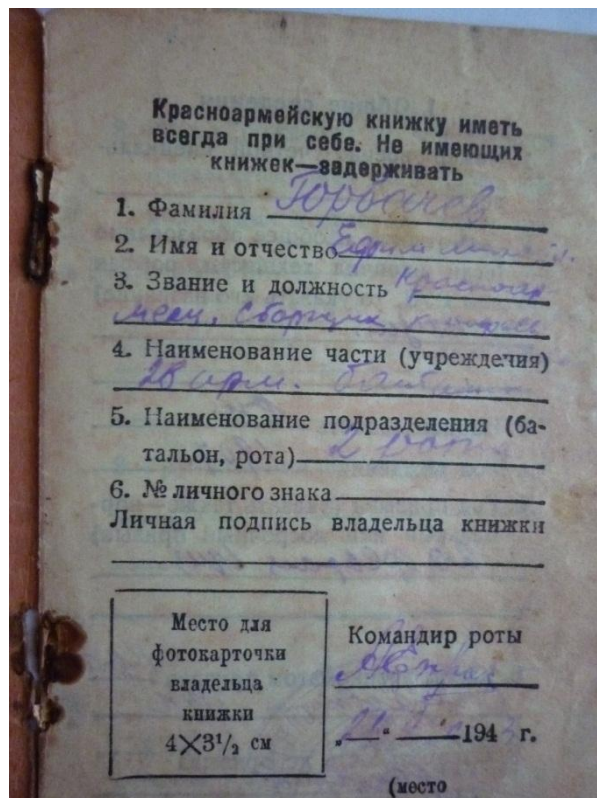 Красноармейскую книжку иметь
всегда при себе. Не имеющих
книжек—задерживать
1. Фамилия Горбачев
2. Имя и отчество Ефим
3. Звание и должность Красноар
меец. Сборщик
4. Наименование части (учреждения)
28 арм.
5. Наименование подразделения (ба-
тальон, рота) 2 рота
6. № личного знака
Личная подпись владельца книжки
Место для
фотокарточки
владельца
книжки
4×3½ см
Командир роты
194 г.
(место